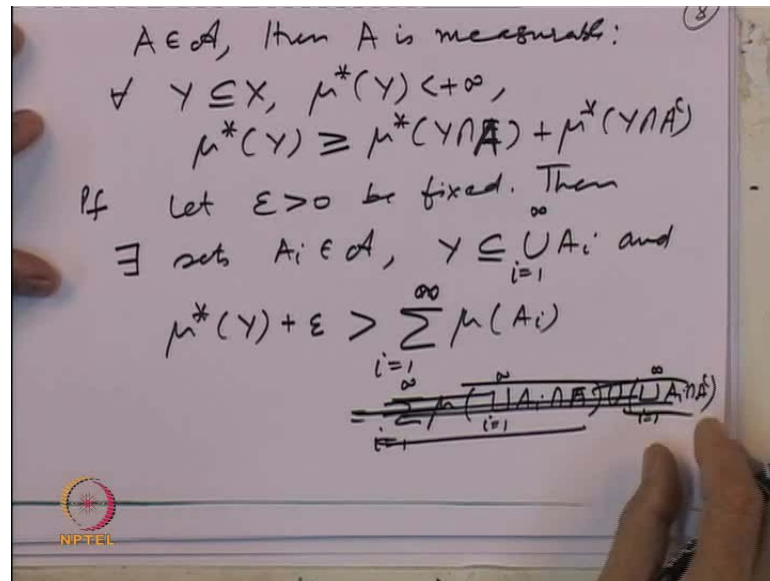 8
A ∈ 𝒜, then A is measurable:
∀ Y ⊆ X, μ*(Y) < +∞,
μ*(Y) ≥ μ*(Y∩A) + μ*(Y∩Aᶜ)
Pf Let ε > 0 be fixed. Then
∃ sets Aᵢ ∈ 𝒜, Y ⊆ ⋃_{i=1}^{∞} Aᵢ and
μ*(Y) + ε > ∑_{i=1}^{∞} μ(Aᵢ)
= ∑_{i=1}^{∞} μ(⋃_{i=1}^{∞} Aᵢ∩A) ∪ (⋃_{i=1}^{∞} Aᵢ∩Aᶜ)
NPTEL